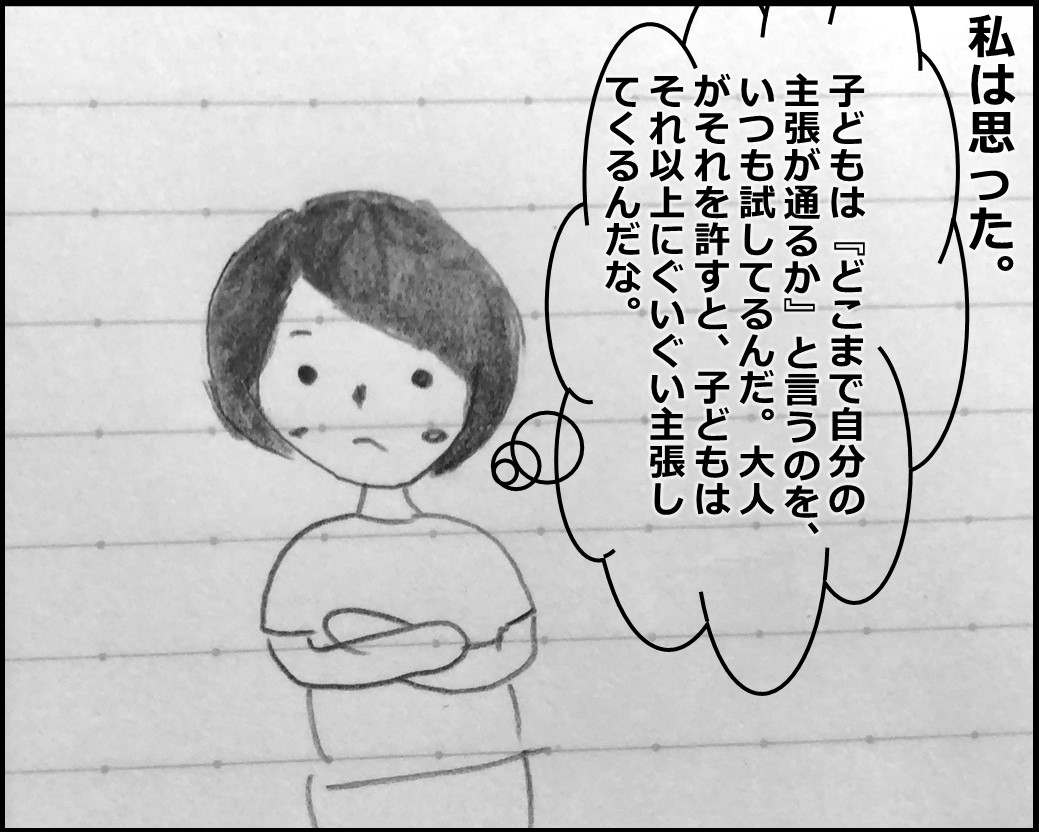 私は思った。
子どもは『どこまで自分の
主張が通るか』と言うのを、
いつも試してるんだ。大人
がそれを許すと、子どもは
それ以上にぐいぐい主張し
てくるんだな。